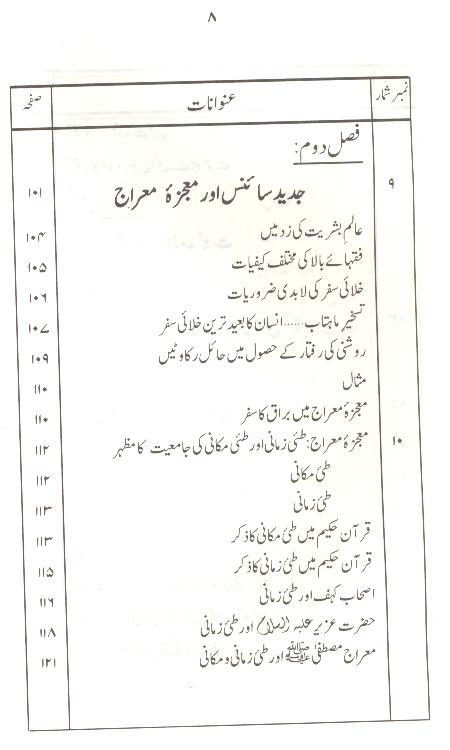 ۸
نمبر شمار عنوانات صفحہ
فصل دوم:
۹ جدید سائنس اور معجزۂ معراج ۱۰۱
عالمِ بشریت کی زد میں ۱۰۴
فقہائے بالا کی مختلف کیفیات ۱۰۵
خلائی سفر کی لابدی ضروریات ۱۰۶
تسخیرِ ماہتاب......انسان کا بعید ترین خلائی سفر ۱۰۷
روشنی کی رفتار کے حصول میں حائل رکاوٹیں ۱۰۹
مثال ۱۱۰
معجزۂ معراج میں براق کا سفر ۱۱۰
۱۰ معجزۂ معراج: طئ زمانی اور طئ مکانی کی جامعیت کا مظہر ۱۱۲
طئ مکانی ۱۱۲
طئ زمانی ۱۱۳
قرآن حکیم میں طئ مکانی کا ذکر ۱۱۳
قرآن حکیم میں طئ زمانی کا ذکر ۱۱۵
اصحاب کہف اور طئ زمانی ۱۱۶
حضرت عزیر علیہ السلام اور طئ زمانی ۱۱۸
معراج مصطفیٰ ﷺ اور طئ زمانی و مکانی ۱۲۱